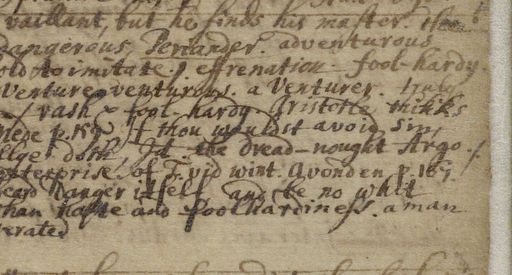 vaillant, but he finds his master
dangerous, Periander. adventurous
old to imitate / effrenation. fool-hardy.
venture. venturous. a Venturer. truly
/ rash & fool-hardy Aristotle thinks
p. 159. If thou wouldst avoid sin,
doth, Id. the dread-nought Argo. /
enterprise of T. vid wint. Avonden p. 167.
danger itself and be no whit
than haste and foolhardiness. a man